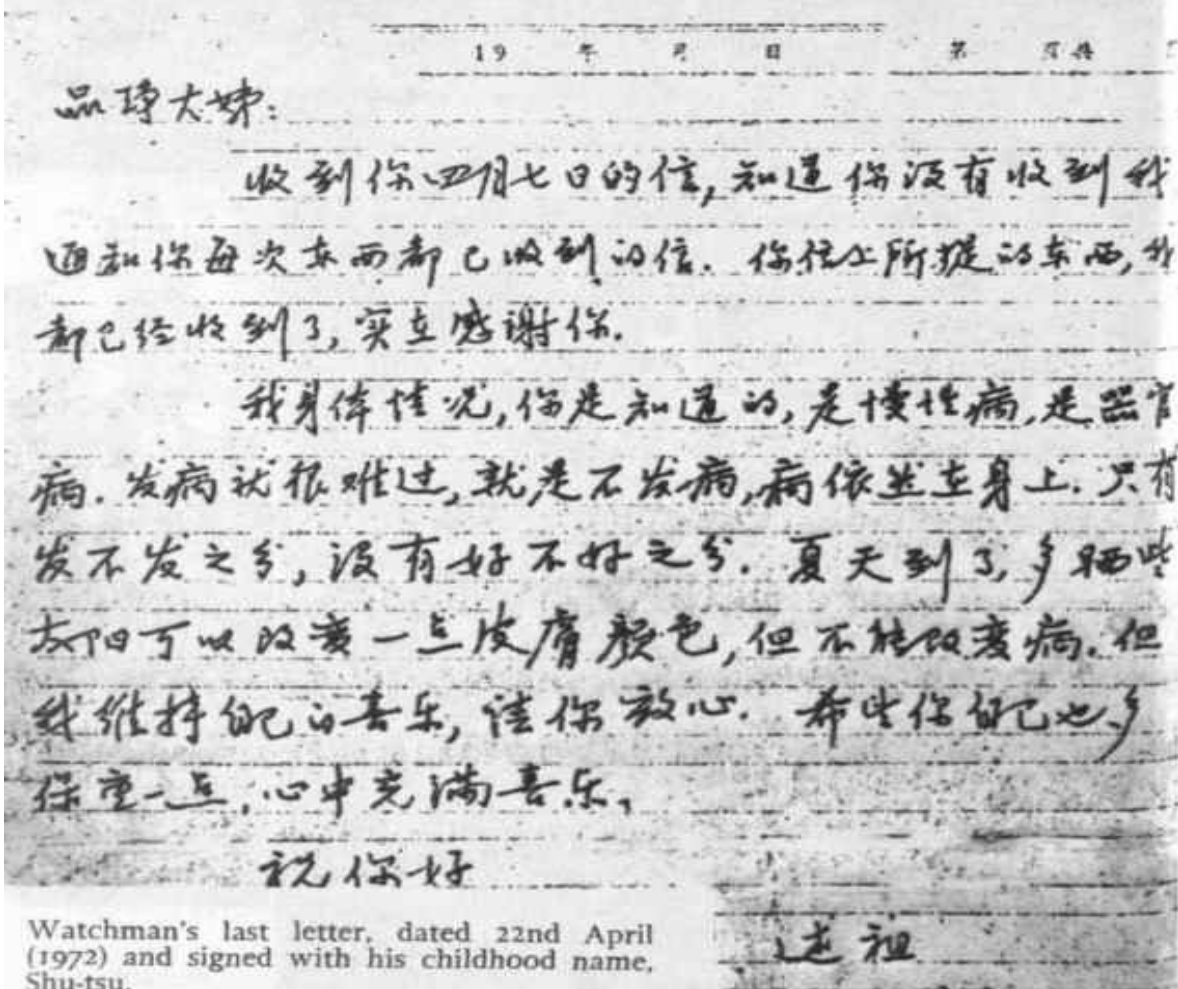 19 年 月 日 第 页共
品琤大姊:
收到你四月七日的信,知道你没有收到我
通知你每次东西都已收到的信.你信上所提的东西,我
都已经收到了,实在感谢你.
我身体情况,你是知道的,是慢性病,是器官
病.发病就很难过,就是不发病,病依然在身上.只有
发不发之分,没有好不好之分.夏天到了,多晒些
太阳可以改变一点皮肤颜色,但不能改变病.但
我维持自己的喜乐,请你放心.希望你自己也多
保重一点,心中充满喜乐.
祝你好
述祖
Watchman's last letter, dated 22nd April
(1972) and signed with his childhood name,
Shu-tsu.